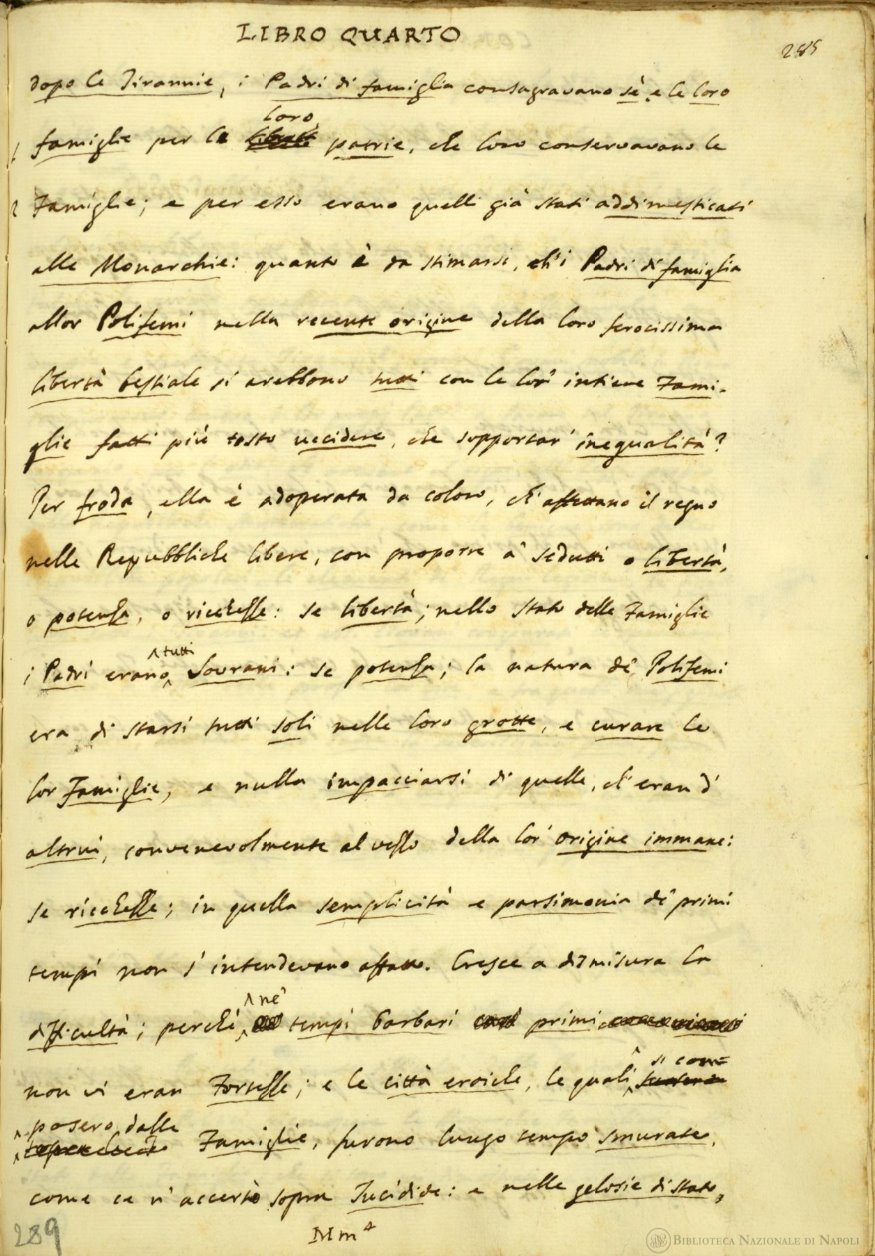 LIBRO QUARTO
289
dopo le Tirannie, i Padri di famiglia consagravano sè, e le loro
loro
famiglie per le patrie, che loro conservavano le
Famiglie; e per esso erano quelli già stati addimesticati
alle Monarchie: quanto è da stimarsi, ch'i Padri di famiglia
allor Polifemi nella recente origine della loro ferocissima
libertà bestiale si arebbono tutti con le lor' intiere Fami-
glie fatti più tosto uccidere, che sopportar' inegualità?
Per froda, ella è adoperata da coloro, ch'affettano il regno
nelle Repubbliche libere, con proporre a' sedutti o libertà,
o potenza, o ricchezze: se libertà; nello stato delle Famiglie
tutti
i Padri erano Sovrani: se potenza; la natura de' Polifemi
era di starsi tutti soli nelle loro grotte, e curare le
lor Famiglie, e nulla impacciarsi di quelle, ch'eran d'
altrui, convenevolmente al vezzo della lor' origine immane:
se ricchezze; in quella semplicità e parsimonia de' primi
tempi non s'intendevano affatto. Cresce a dismisura la
ne'
difficultà; perchè tempi barbari primi
si com=
non vi eran Fortezze; e le città eroiche, le quali
posero dalle
Famiglie, furono lungo tempo smurate,
come ce n'accertò sopra Tucidide: e nelle gelosie di Stato,
289
Mm 4
BIBLIOTECA NAZIONALE DI NAPOLI